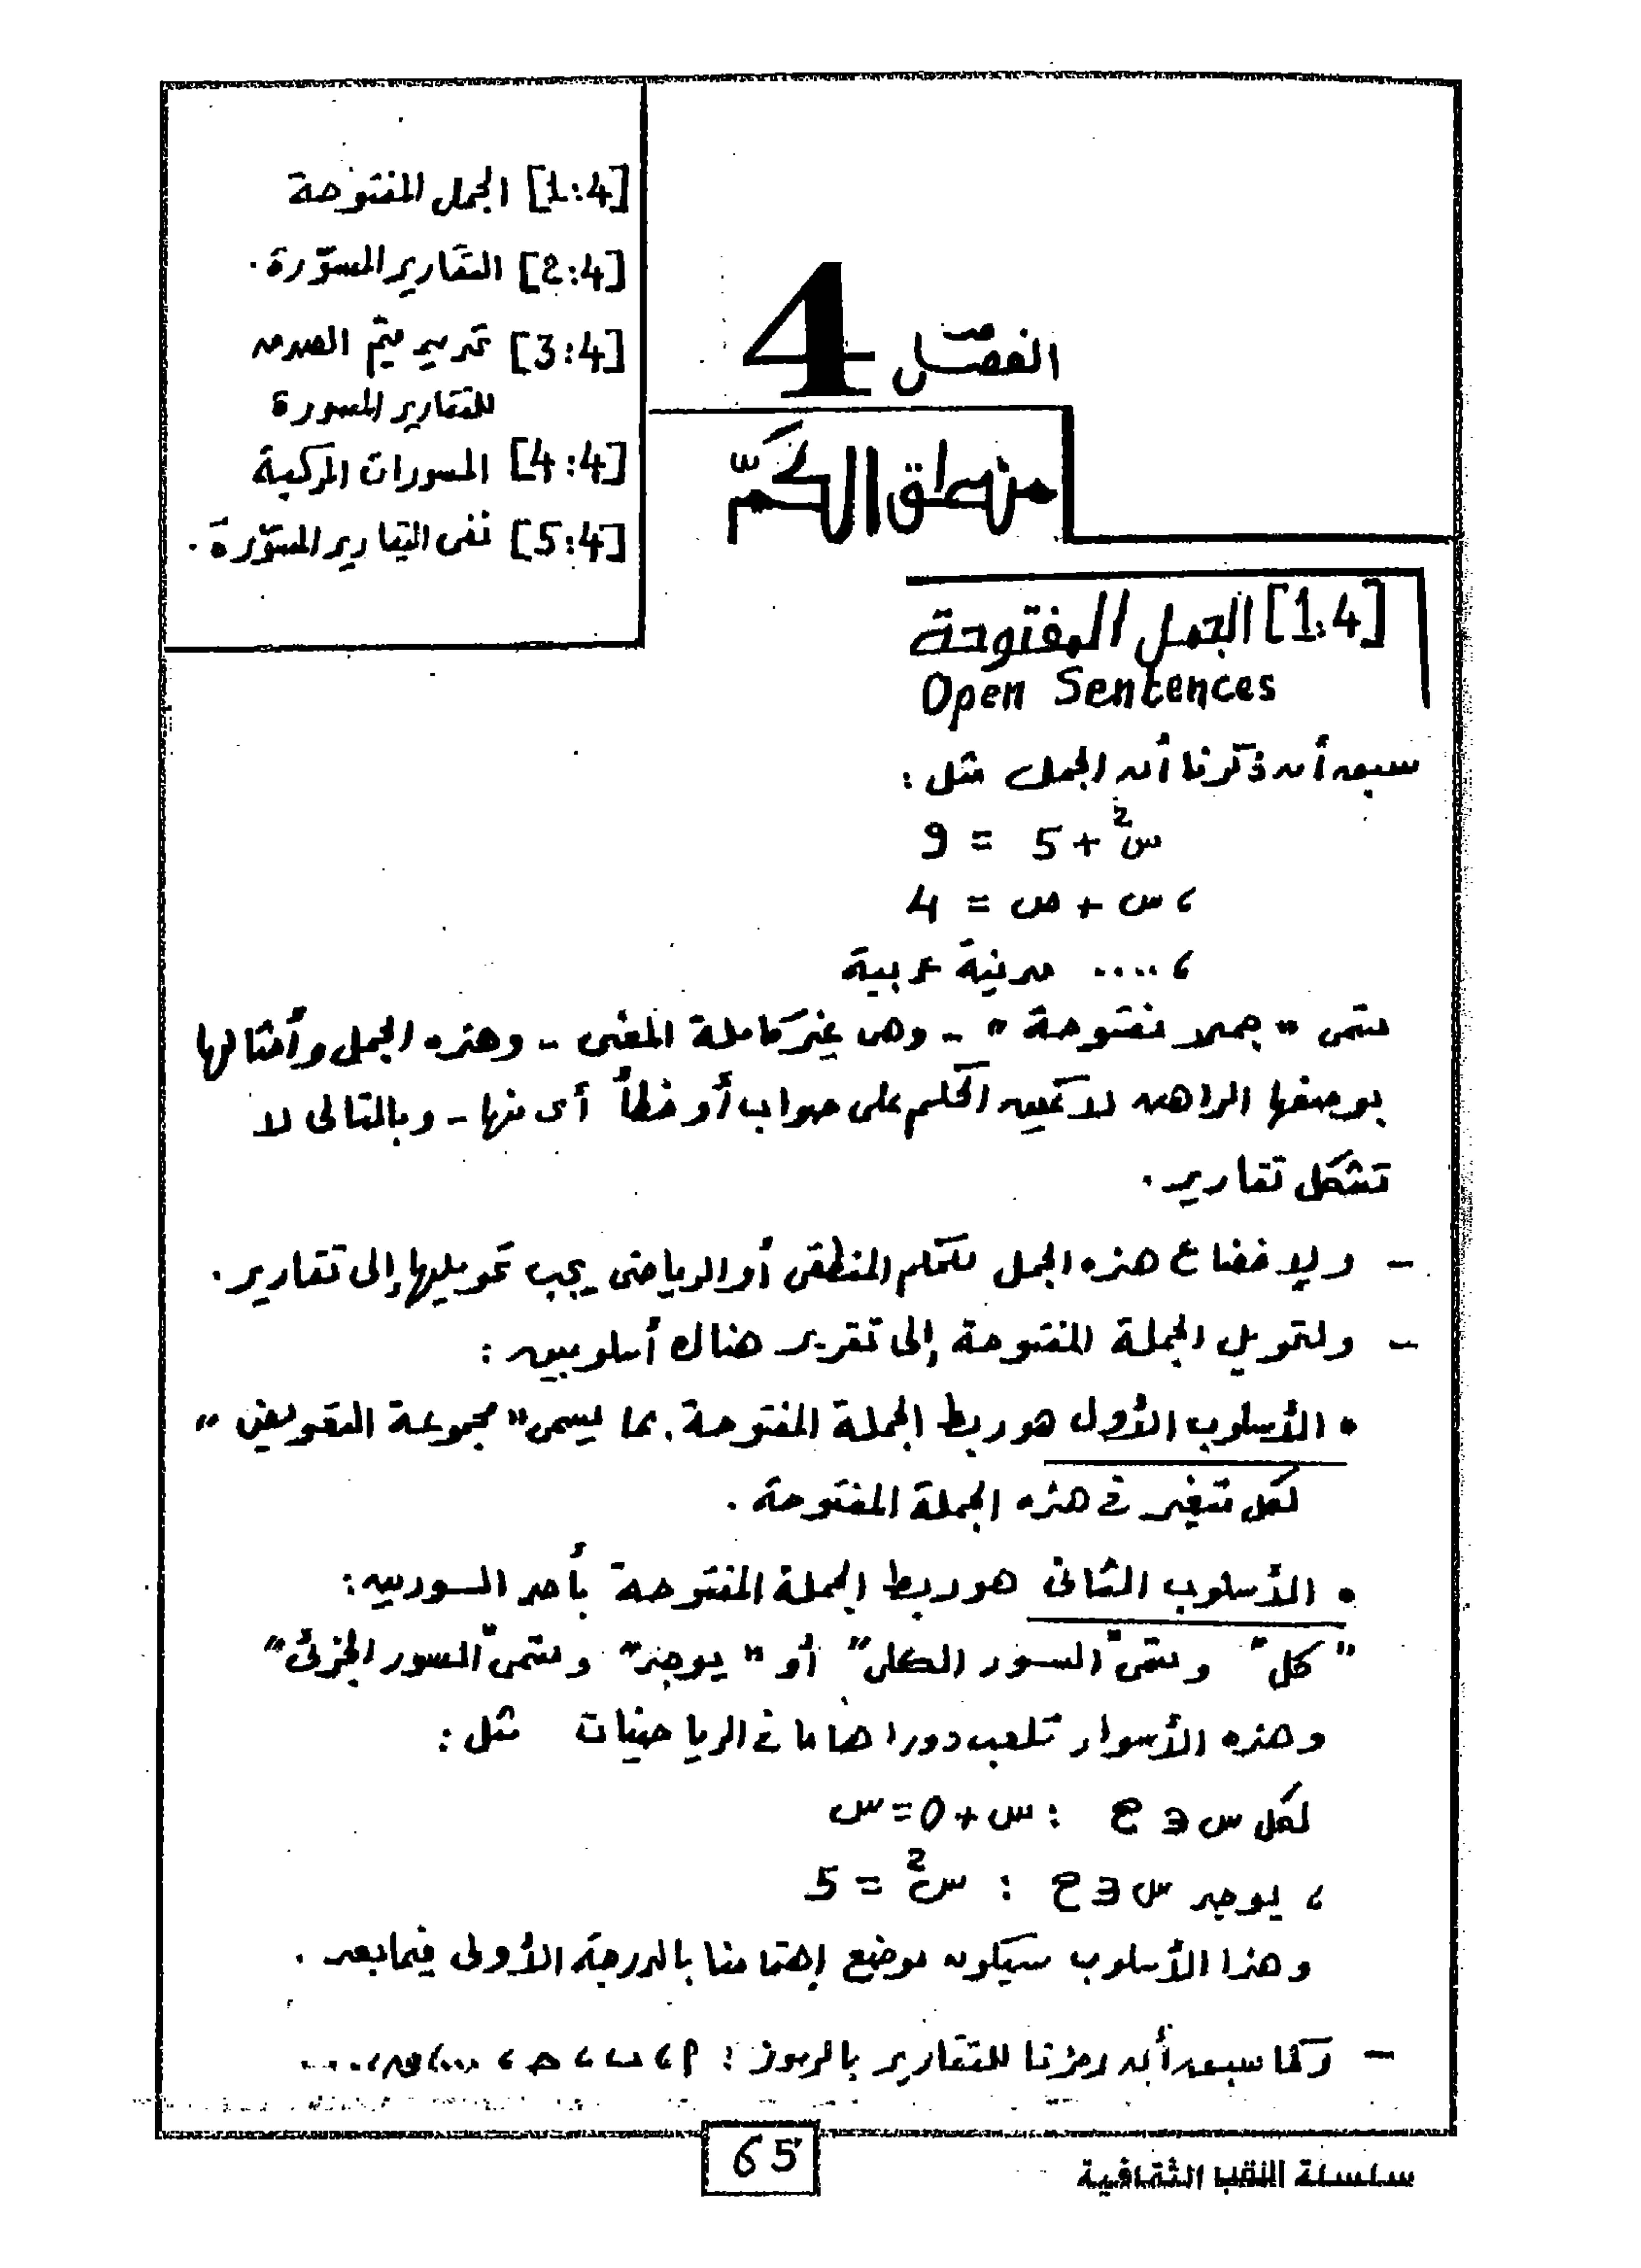 الفصل 4
منطق الكمّ
[1:4] الجمل المفتوحة
[2:4] التقارير المسوّرة.
[3:4] تحديد قيم الصدق
للتقارير المسورة
[4:4] المسورات المركبة
[5:4] نفى التقارير المسوّرة.
[1:4] الجمل المفتوحة
Open Sentences
سبق أن ذكرنا أن الجمل مثل :
س² + 5 = 9
، س + ص = 4
، .... مدينة عربية
تسمى " جملا مفتوحة " - وهى غير كاملة المعنى - وهذه الجمل وأمثالها
بوضعها الراهن لا يمكن الحكم على صواب أو خطأ أى منها - وبالتالى لا
تشكل تقارير .
- ولإخضاع هذه الجمل للحكم المنطقى أو الرياضى يجب تحويلها إلى تقارير .
- ولتحويل الجملة المفتوحة إلى تقرير هناك أسلوبين :
• الأسلوب الأول هو ربط الجملة المفتوحة بما يسمى " مجموعة التعويض "
لكل متغير فى هذه الجملة المفتوحة .
• الأسلوب الثانى هو ربط الجملة المفتوحة بأحد السورين :
" كل " وتسمى " السور الكلى " أو " يوجد " وتسمى " السور الجزئى "
وهذه الأسوار تلعب دورا هاما فى الرياضيات مثل :
لكل س ∈ ح : س + 0 = س
، يوجد س ∈ ح : س² = 5
وهذا الأسلوب سيكون موضع إهتمامنا بالدرجة الأولى فيما بعد .
- وكما سبق أن رمزنا للتقارير بالرموز : م ، ب ، ح ، ... ، ن ، ...
65
سلسلة النقب الثقافية